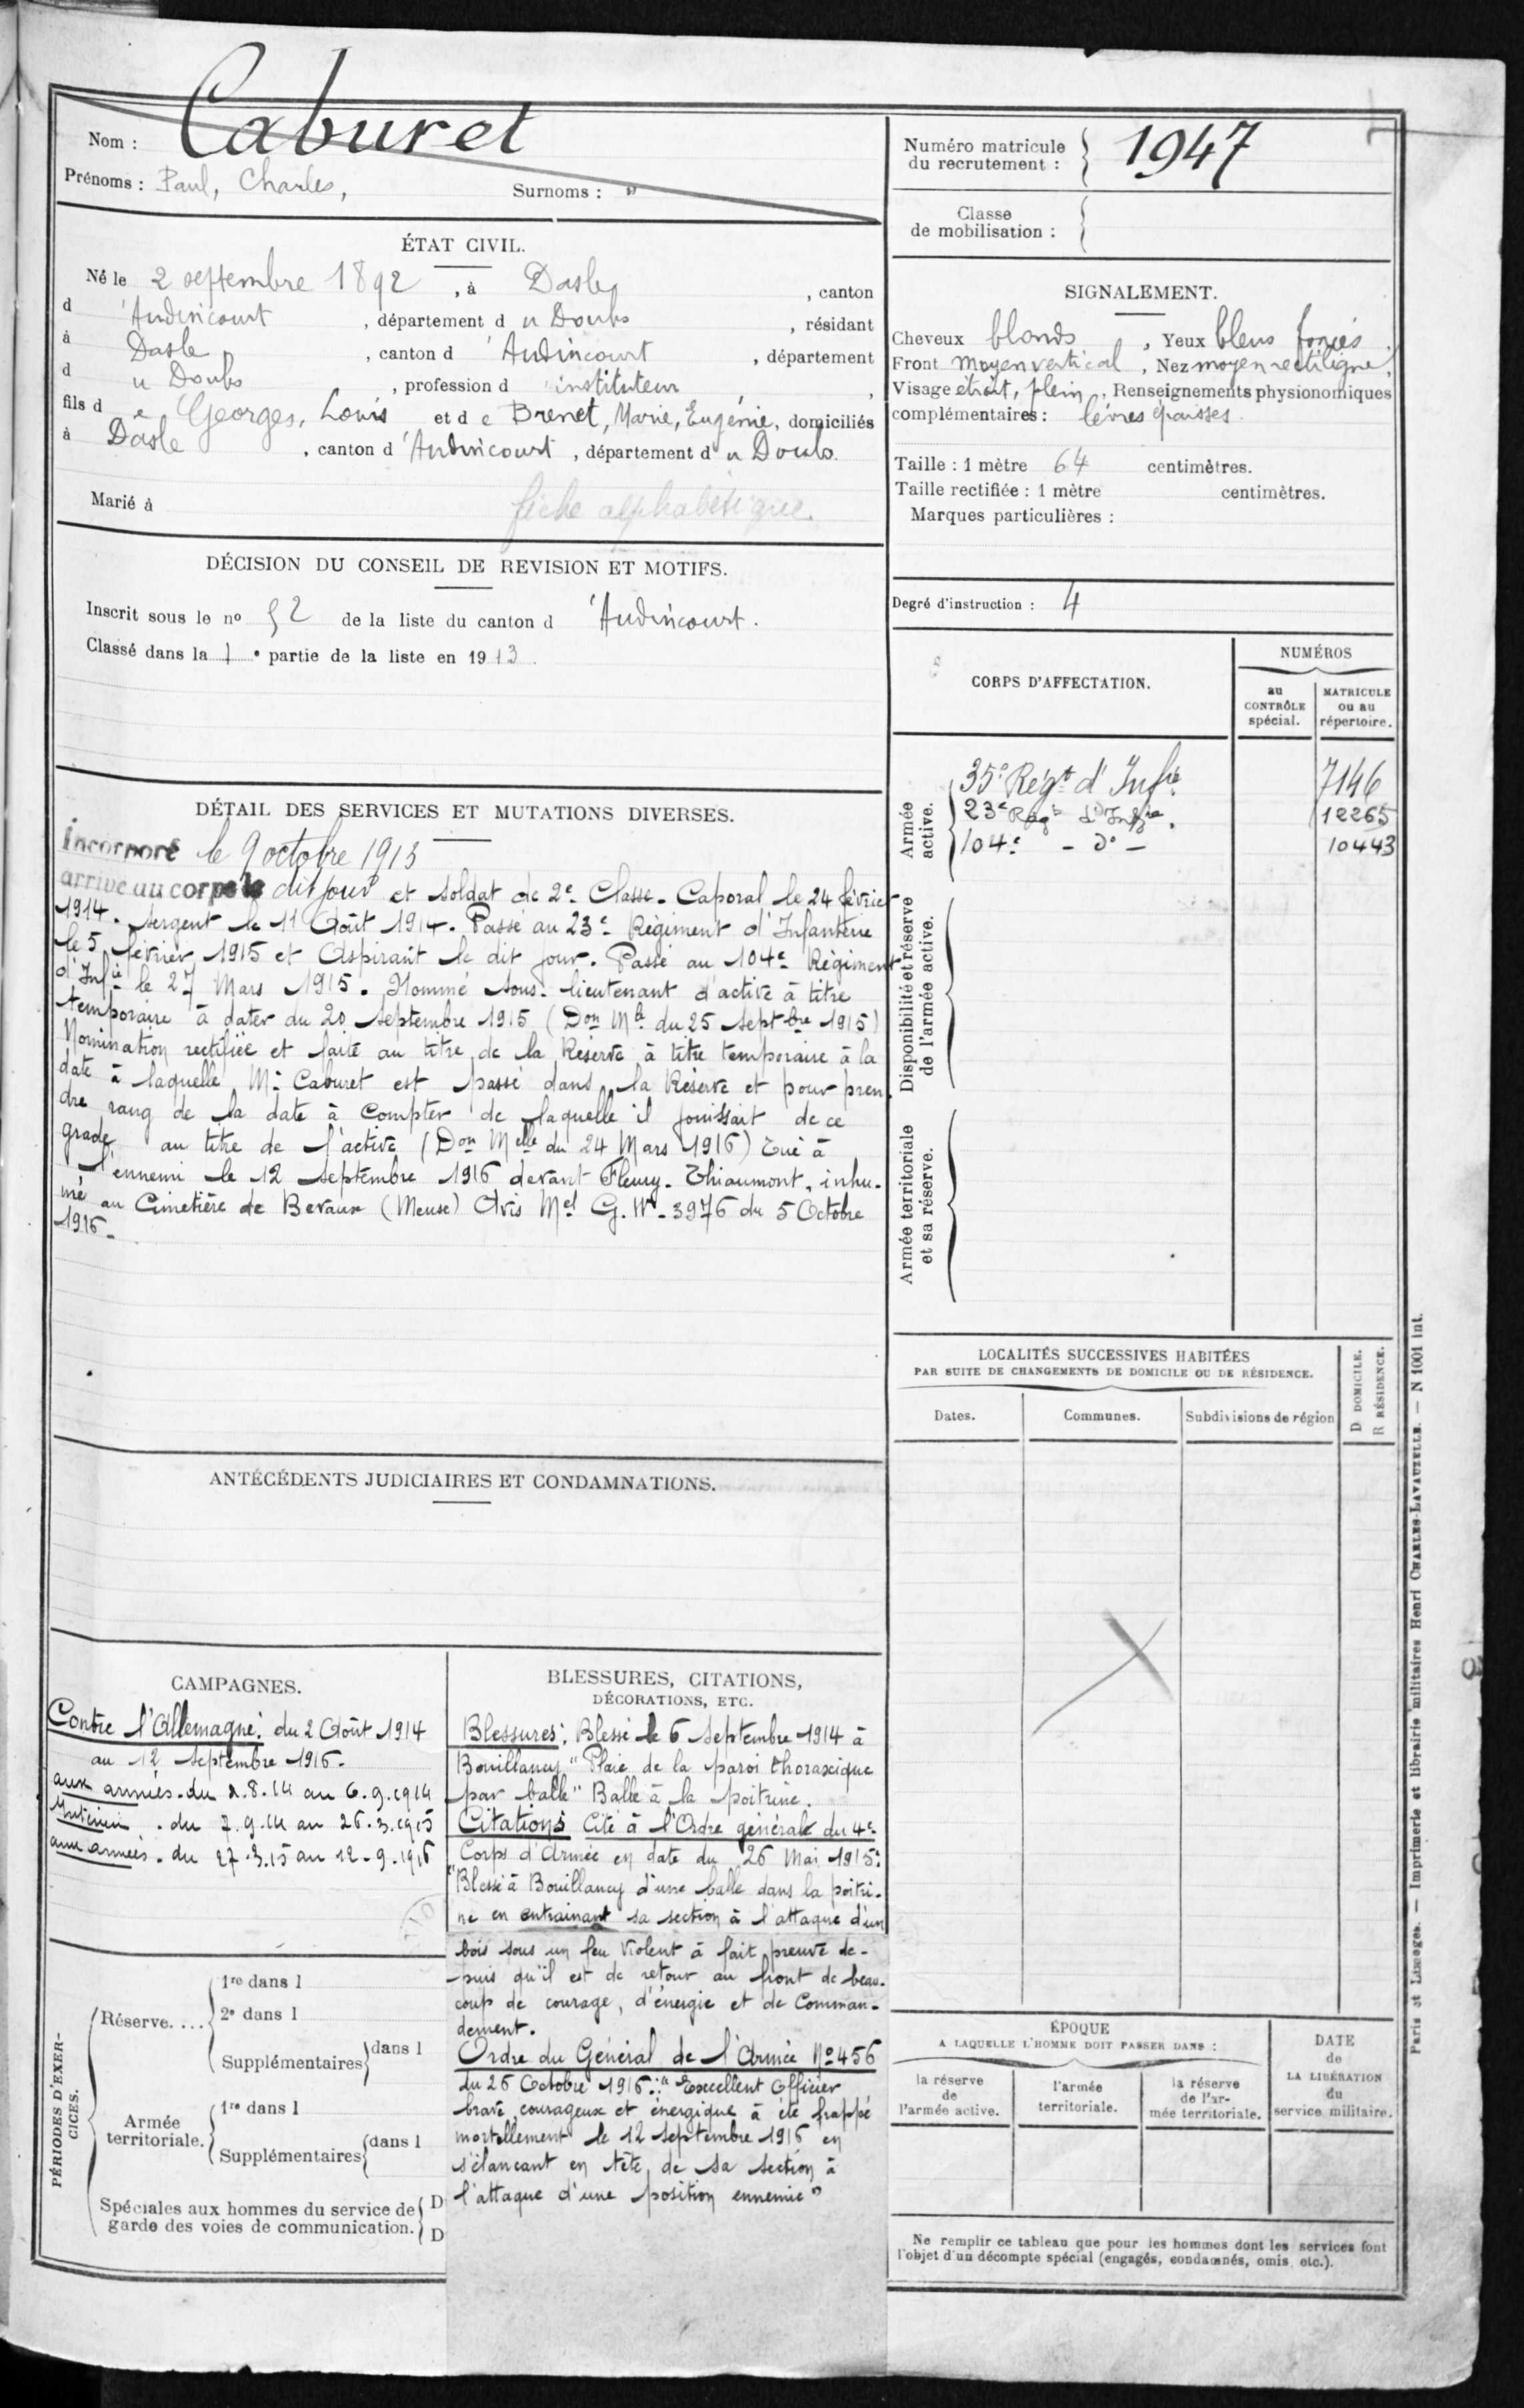 Nom : Caburet
Prénoms : Paul, Charles, Surnoms : "
ÉTAT CIVIL.
Né le 2 septembre 1892, à Dasle, canton
d'Audincourt, département du Doubs, résidant
à Dasle, canton d'Audincourt, département
du Doubs, profession d'instituteur,
fils de Georges, Louis et de Brenet, Marie, Eugénie, domiciliés
à Dasle, canton d'Audincourt, département du Doubs.
Marié à
fiche alphabétique.
DÉCISION DU CONSEIL DE REVISION ET MOTIFS.
Inscrit sous le no 52 de la liste du canton d'Audincourt.
Classé dans la 1e partie de la liste en 1913.
DÉTAIL DES SERVICES ET MUTATIONS DIVERSES.
Incorporé le 9 octobre 1913
arrivé au corps le dit jour et soldat de 2e Classe. Caporal le 24 février
1914. Sergent le 11 Août 1914. Passé au 23e Régiment d'Infanterie
le 5 février 1915 et Aspirant le dit jour. Passé au 104e Régiment
d'Infie le 27 Mars 1915. Nommé sous-lieutenant d'active à titre
temporaire à dater du 20 septembre 1915 (Don Mle du 25 Septbre 1915)
Nomination rectifiée et faite au titre de la Réserve à titre temporaire à la
date à laquelle Mr Caburet est passé dans la Réserve et pour pren
dre rang de la date à compter de laquelle il jouissait de ce
grade au titre de l'active (Don Melle du 24 Mars 1916) Tué à
l'ennemi le 12 septembre 1916 devant Fleury-Thiaumont, inhu-
mé au Cimetière de Bevaux (Meuse) Avis Mel G.W-3976 du 5 Octobre
1916-
ANTÉCÉDENTS JUDICIAIRES ET CONDAMNATIONS.
CAMPAGNES.
Contre l'Allemagne: du 2 Août 1914
au 12 septembre 1916.
aux armées. du 2.8.14 au 6.9.1914
Intérieur. du 7.9.14 au 26.3.1915
aux armées. du 27.3.15 au 12-9-1916
BLESSURES, CITATIONS,
DÉCORATIONS, ETC.
Blessures: Blessé le 6 Septembre 1914 à
Bouillancy "Plaie de la paroi thoraxique
par balle" Balle à la poitrine.
Citations Cité à l'Ordre générale du 4e
Corps d'Armée en date du 26 Mai 1915:
"Blessé à Bouillancy d'une balle dans la poitri-
ne en entrainant sa section à l'attaque d'un
bois sous un feu violent à fait preuve de-
puis qu'il est de retour au front de beau-
coup de courage, d'énergie et de Comman-
dement.
Ordre du Général de l'Armée No 456
du 26 Octobre 1916: "Excellent Officier
brave courageux et énergique à été frappé
mortellement le 12 septembre 1916 en
s'élancant en tête de sa section à
l'attaque d'une position ennemie"
PÉRIODES D'EXER-
CICES.
Réserve....
1re dans l
2e dans l
Supplémentaires dans l
Armée
territoriale.
1re dans l
Supplémentaires dans l
Spéciales aux hommes du service de
garde des voies de communication.
D
D
Numéro matricule
du recrutement : 1947
Classe
de mobilisation :
SIGNALEMENT.
Cheveux blonds, Yeux bleus foncés.
Front moyen vertical, Nez moyen rectiligne,
Visage étroit, plein, Renseignements physionomiques
complémentaires : lèvres épaisses.
Taille : 1 mètre 64 centimètres.
Taille rectifiée : 1 mètre centimètres.
Marques particulières :
Degré d'instruction : 4
CORPS D'AFFECTATION.
NUMÉROS
au
CONTRÔLE
spécial.
MATRICULE
ou au
répertoire.
Armée
active.
35e Régt d'Infie 7146
23e Régt d'Infie. 12265
104e - do - 10443
Disponibilité et réserve
de l'armée active.
Armée territoriale
et sa réserve.
LOCALITÉS SUCCESSIVES HABITÉES
PAR SUITE DE CHANGEMENTS DE DOMICILE OU DE RÉSIDENCE.
D DOMICILE.
R RÉSIDENCE.
Dates. Communes. Subdivisions de région
ÉPOQUE
A LAQUELLE L'HOMME DOIT PASSER DANS :
la réserve
de
l'armée active.
l'armée
territoriale.
la réserve
de l'ar-
mée territoriale.
DATE
de
LA LIBÉRATION
du
service militaire.
Ne remplir ce tableau que pour les hommes dont les services font
l'objet d'un décompte spécial (engagés, condamnés, omis, etc.).
Paris et Limoges. — Imprimerie et librairie militaires Henri CHARLES-LAVAUZELLE. — N 1001 int.